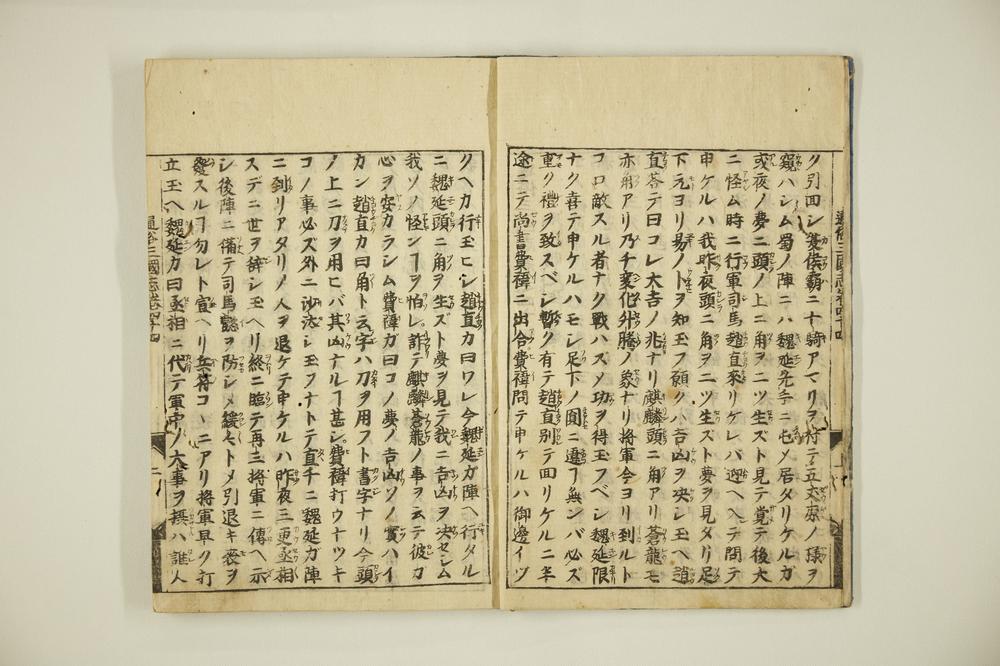 ク引回シ夏侯覇ニ十騎アマリヲ付テ五丈原ノ様ヲ
窺ハシム蜀ノ陣ニハ魏延先手ニ屯メ居タリケルガ
或夜ノ夢ニ頭ノ上ニ角ヲ二ツ生ズト見テ覚テ後大
ニ怪ム時ニ行軍司馬趙直來リケレバ迎ヘヘテ問テ
申ケルハ我昨夜頭ニ角ヲ二ツ生ズト夢ヲ見タリ足
下元ヨリ易ノトヲ知玉フ願クハ吉凶ヲ决シ玉ヘ趙
直荅テ曰コレ大吉ノ兆ナリ麒麟頭ニ角アリ蒼龍モ
亦角アリ乃チ変化升騰ノ象ナリ将軍今ヨリ到ルト
コロ敵スル者ナク戦ハズメ功ヲ得玉フベシ魏延限
ナク喜テ申ケルハモシ足下ノ圓ニ違ヿ無ンバ必ズ
重ク禮ヲ致スベシ暫ク有テ趙直別テ回リケルニ半
途ニテ尚書費禕ニ出合費禕問テ申ケルハ御邊イヅ
クヘカ行玉ヒシ趙直カ曰ワレ今魏延ガ陣ヘ行タル
ニ魏延頭ニ角ヲ生ズト夢ヲ見テ我ニ吉凶ヲ决セシム
我ソノ怪シヿヲ怕レ詐テ麒麟蒼龍ノ事ヲ云テ彼ガ
心ヲ安カラシム費禕ガ曰コノ夢ノ吉凶ソノ實ハイ
カン趙直カ曰角ト云字ハ刀ヲ用フト書字ナリ今頭
ノ上ニ刀ヲ用ヒバ其凶ナルヿ甚シ費禕打ウナツキ
コノ事必ズ外ニ沙汰シ玉フナトテ直チニ魏延ガ陣
ニ到リアタリノ人ヲ退ケテ申ケルハ昨夜三更丞相
スデニ世ヲ辞シ玉ヘリ終ニ臨テ再三将軍ニ傳ヘ示
シ後陣ニ備テ司馬懿ヲ防シメ緩々トメ引退キ喪ヲ
發スルヿ勿レト宣ヘリ兵符コヽニアリ将軍早ク打
立玉ヘ魏延カ曰丞相ニ代テ軍中ノ大事ヲ摂ハ誰人
通俗三國志巻四十四